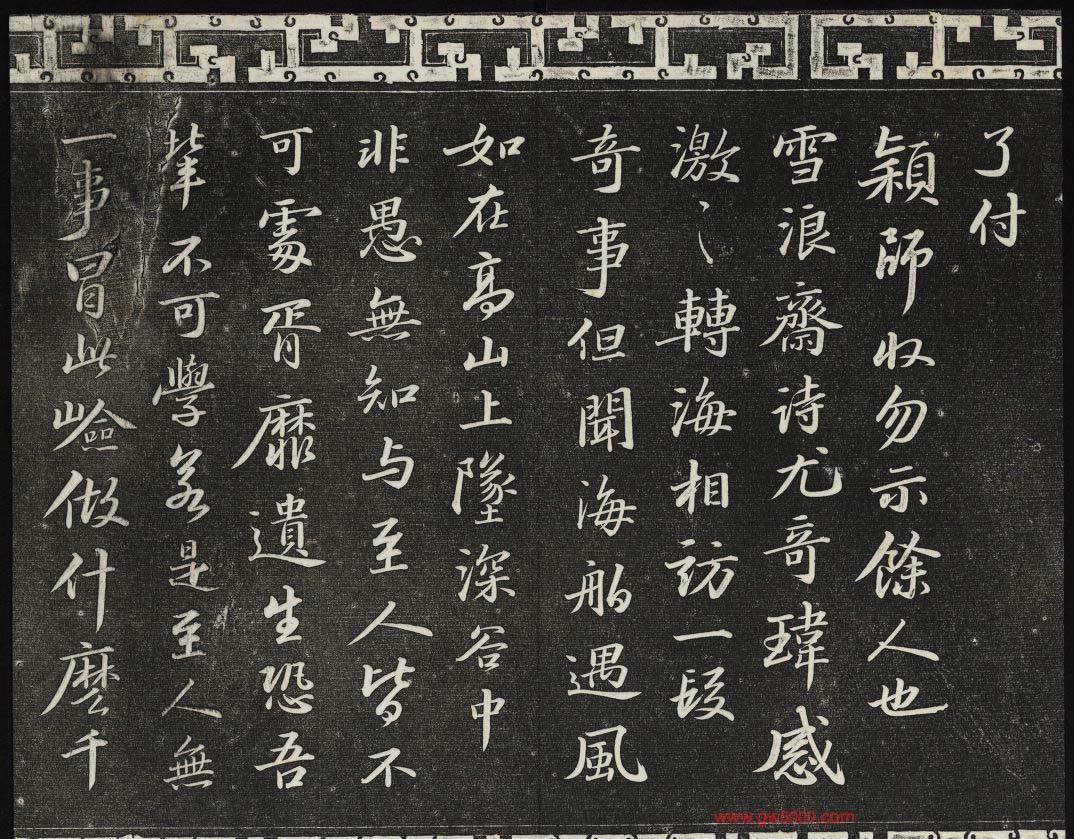 了付
穎師收勿示餘人也
雪浪齋诗尤奇瑋感
激〻轉海相訪一段
奇事但聞海舶遇風
如在高山上墜深谷中
非愚無知与至人皆不
可處胥靡遺生恐吾
輩不可學若是至人無
一事冒此嶮做什麽千
www.gw5000.com